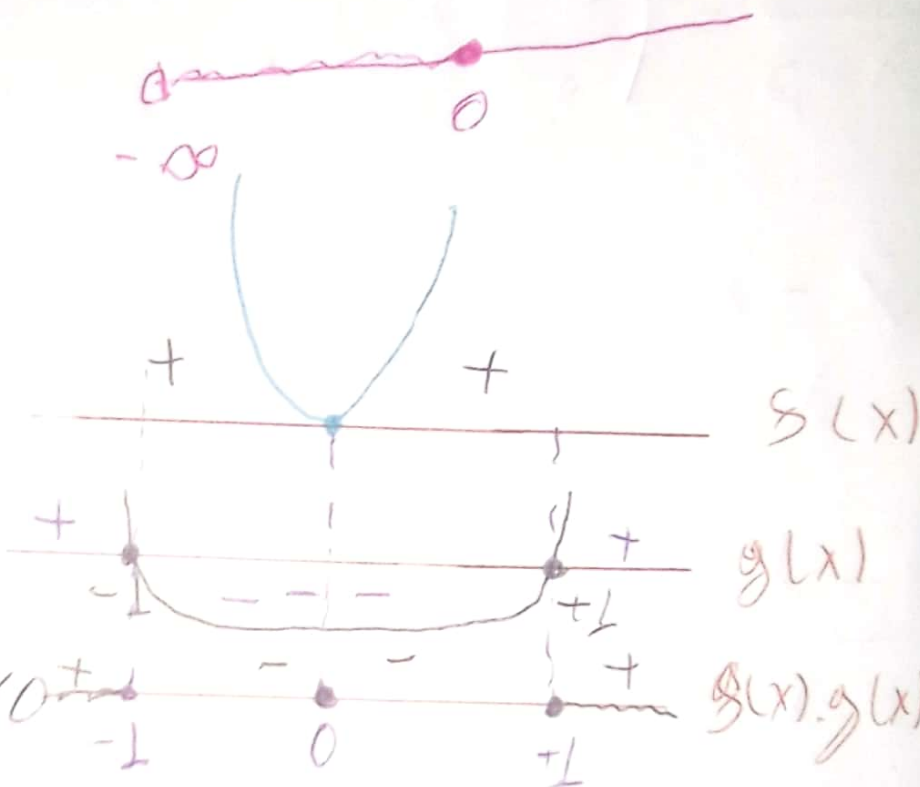 0
- ∞
+ +
f(x)
+ +
g(x)
-1 - - - +1
+ - - +
f(x).g(x)
-1 0 +1